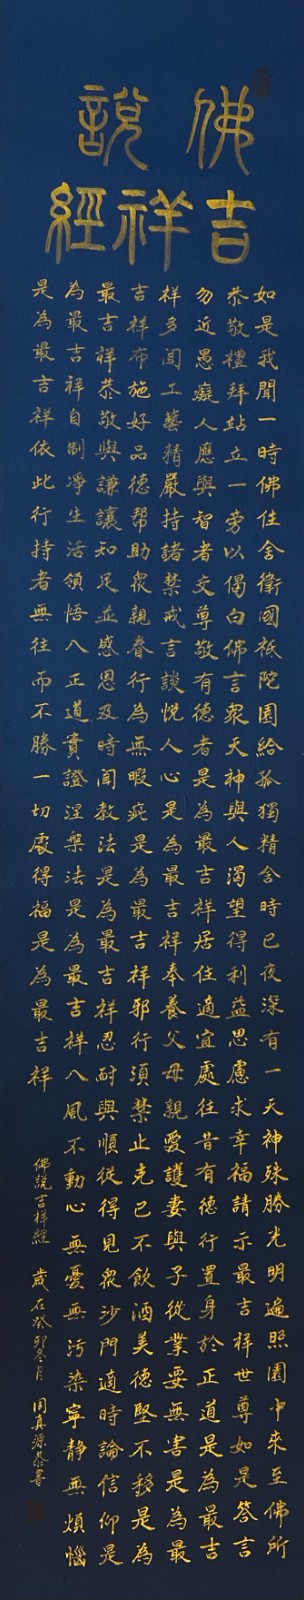 佛說
吉祥經
如是我聞一時佛住舍衛國祇陀園給孤獨精舍時已夜深有一天神殊勝光明遍照園中來至佛所
恭敬禮拜站立一旁以偈白佛言眾天神與人渴望得利益思慮求幸福請示最吉祥世尊如是答言
勿近愚癡人應與智者交尊敬有德者是為最吉祥居住適宜處往昔有德行置身於正道是為最吉
祥多聞工藝精嚴持諸禁戒言談悅人心是為最吉祥奉養父母親愛護妻與子從業要無害是為最
吉祥布施好品德幫助眾親眷行為無瑕疵是為最吉祥邪行須禁止克己不飲酒美德堅不移是為
最吉祥恭敬與謙讓知足並感恩及時聞教法是為最吉祥忍耐與順從得見眾沙門適時論信仰是
為最吉祥自制淨生活領悟八正道實證涅槃法是為最吉祥八風不動心無憂無污染寧靜無煩惱
是為最吉祥依此行持者無往而不勝一切處得福是為最吉祥
佛說吉祥經 歲在癸卯冬月 真源恭書